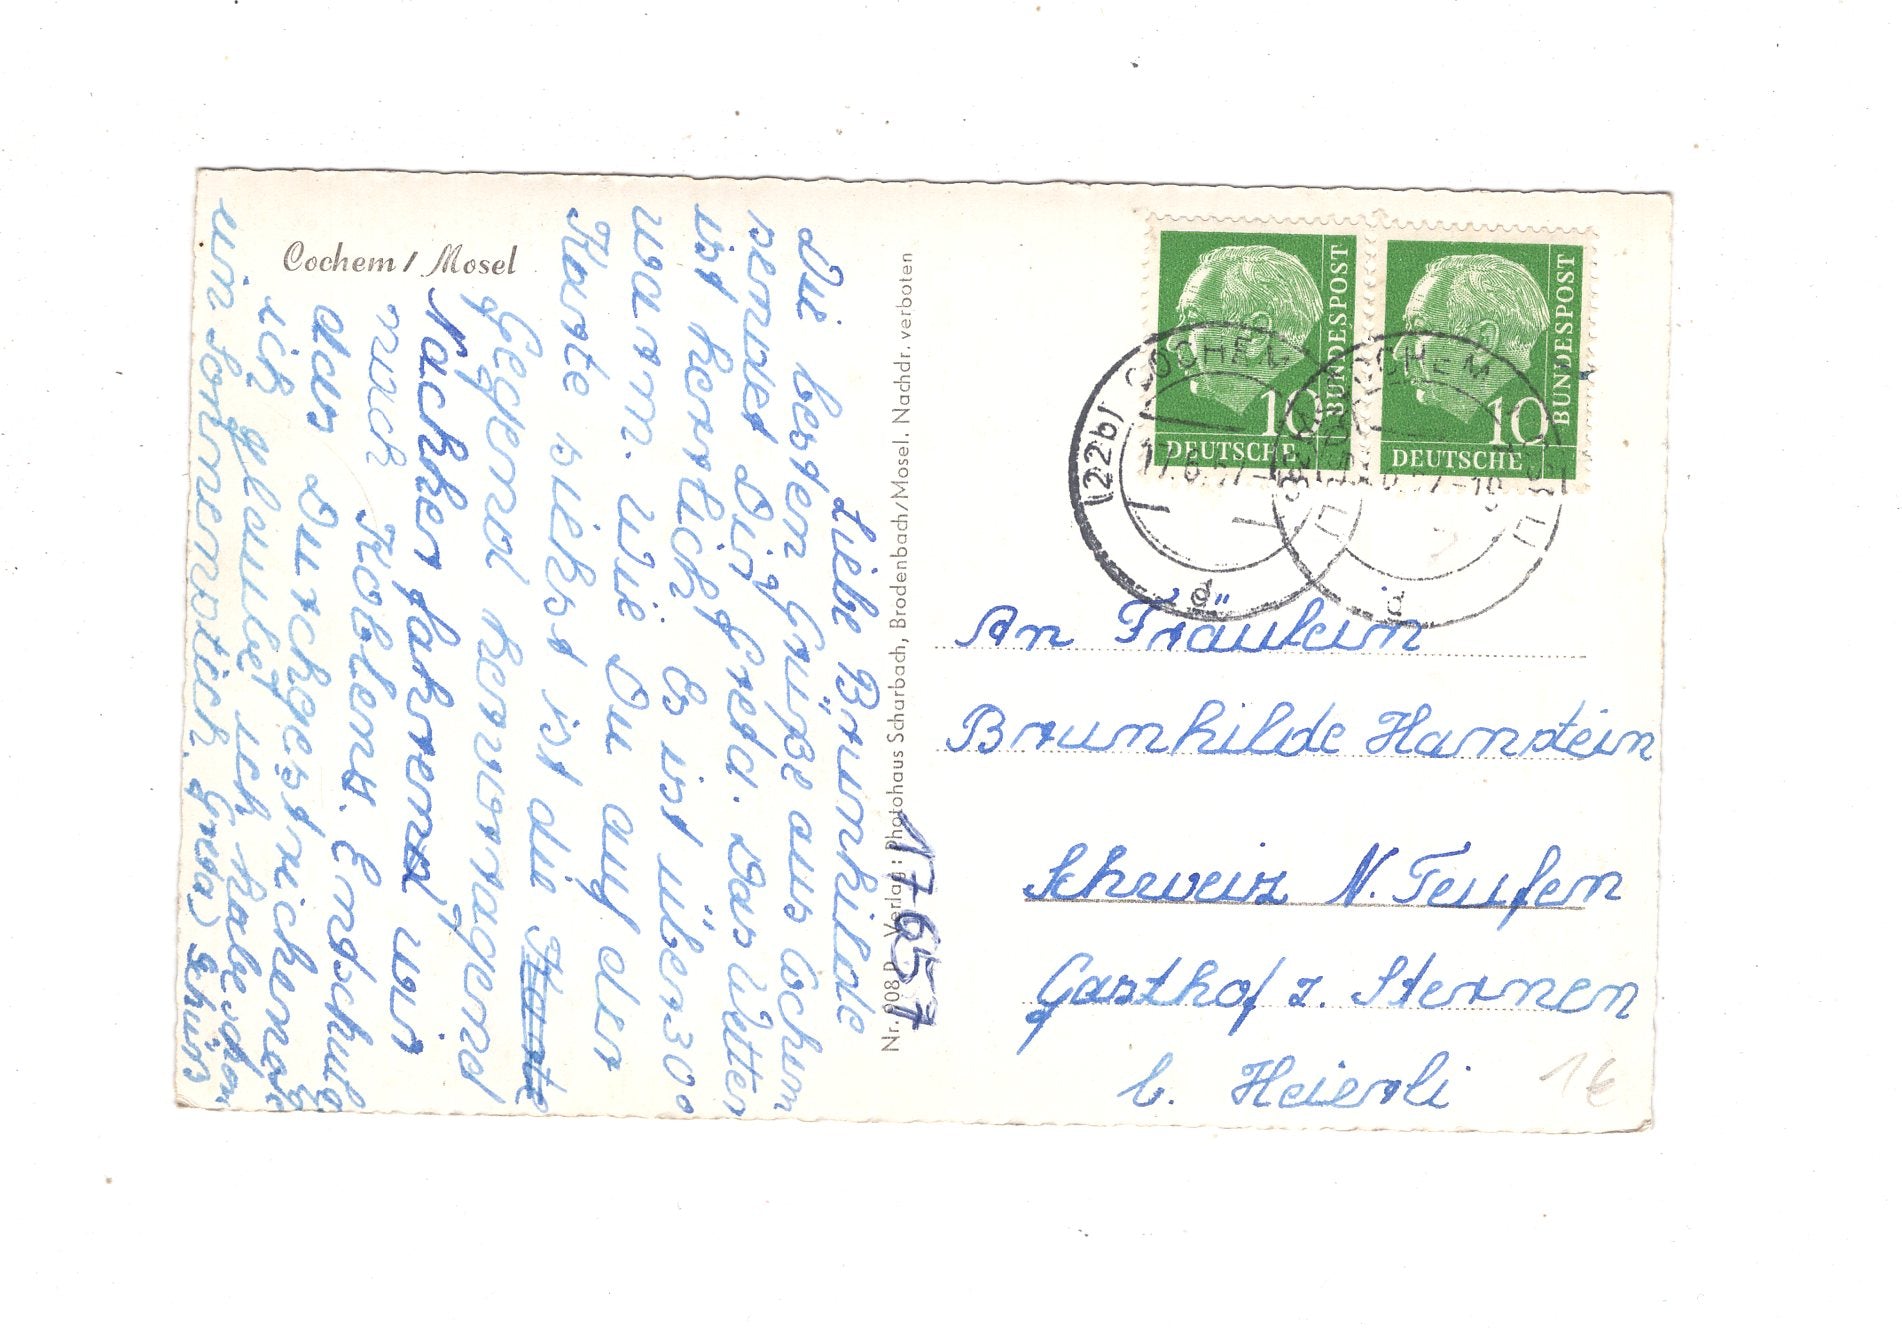 Cochem / Mosel
Liebe Brunhilde
Die besten Grüße aus Cochem
sendet Dir Greta. Das Wetter
ist herrlich. Es ist über 30°
warm. Wie Du auf der
Karte siehst ist die Karte
Gegend hervorragend
Nachher fahren wir
nach Koblenz. Entschuldige
das Durchgestrichene
ich glaube ich habe schon
ein Sonnenstich. Greta) Tschüs
Nr. 908 D Verlag: Photohaus Scharbach, Brodenbach/Mosel. Nachdr. verboten
17 6 57
DEUTSCHE BUNDESPOST 10
DEUTSCHE BUNDESPOST 10
(22b) COCHEM
17.6.57-18
d
COCHEM
.6.57-18
d
An Fräulein
Brunhilde Hanstein
Schweiz N. Teufen
Gasthof z. Sternen
b. Heierli
1€